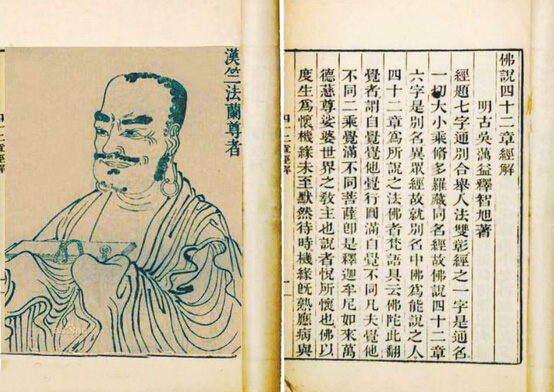 佛說四十二章經解
明古吳蕅益釋智旭著
經題七字通別合舉人法雙彰經之一字是通名
一切大小乘脩多羅藏同名經故佛說四十二章
六字是別名異眾經故就別名中佛爲能說之人
四十二章爲所說之法佛者梵語具云佛陀此翻
覺者謂自覺覺他覺行圓滿自覺不同凡夫覺他
不同二乘覺滿不同菩薩卽是釋迦牟尼如來萬
德慈尊娑婆世界之教主也說者悅所懷也佛以
度生爲懷機緣未至默然待時機緣旣熟應病與
漢竺法蘭尊者